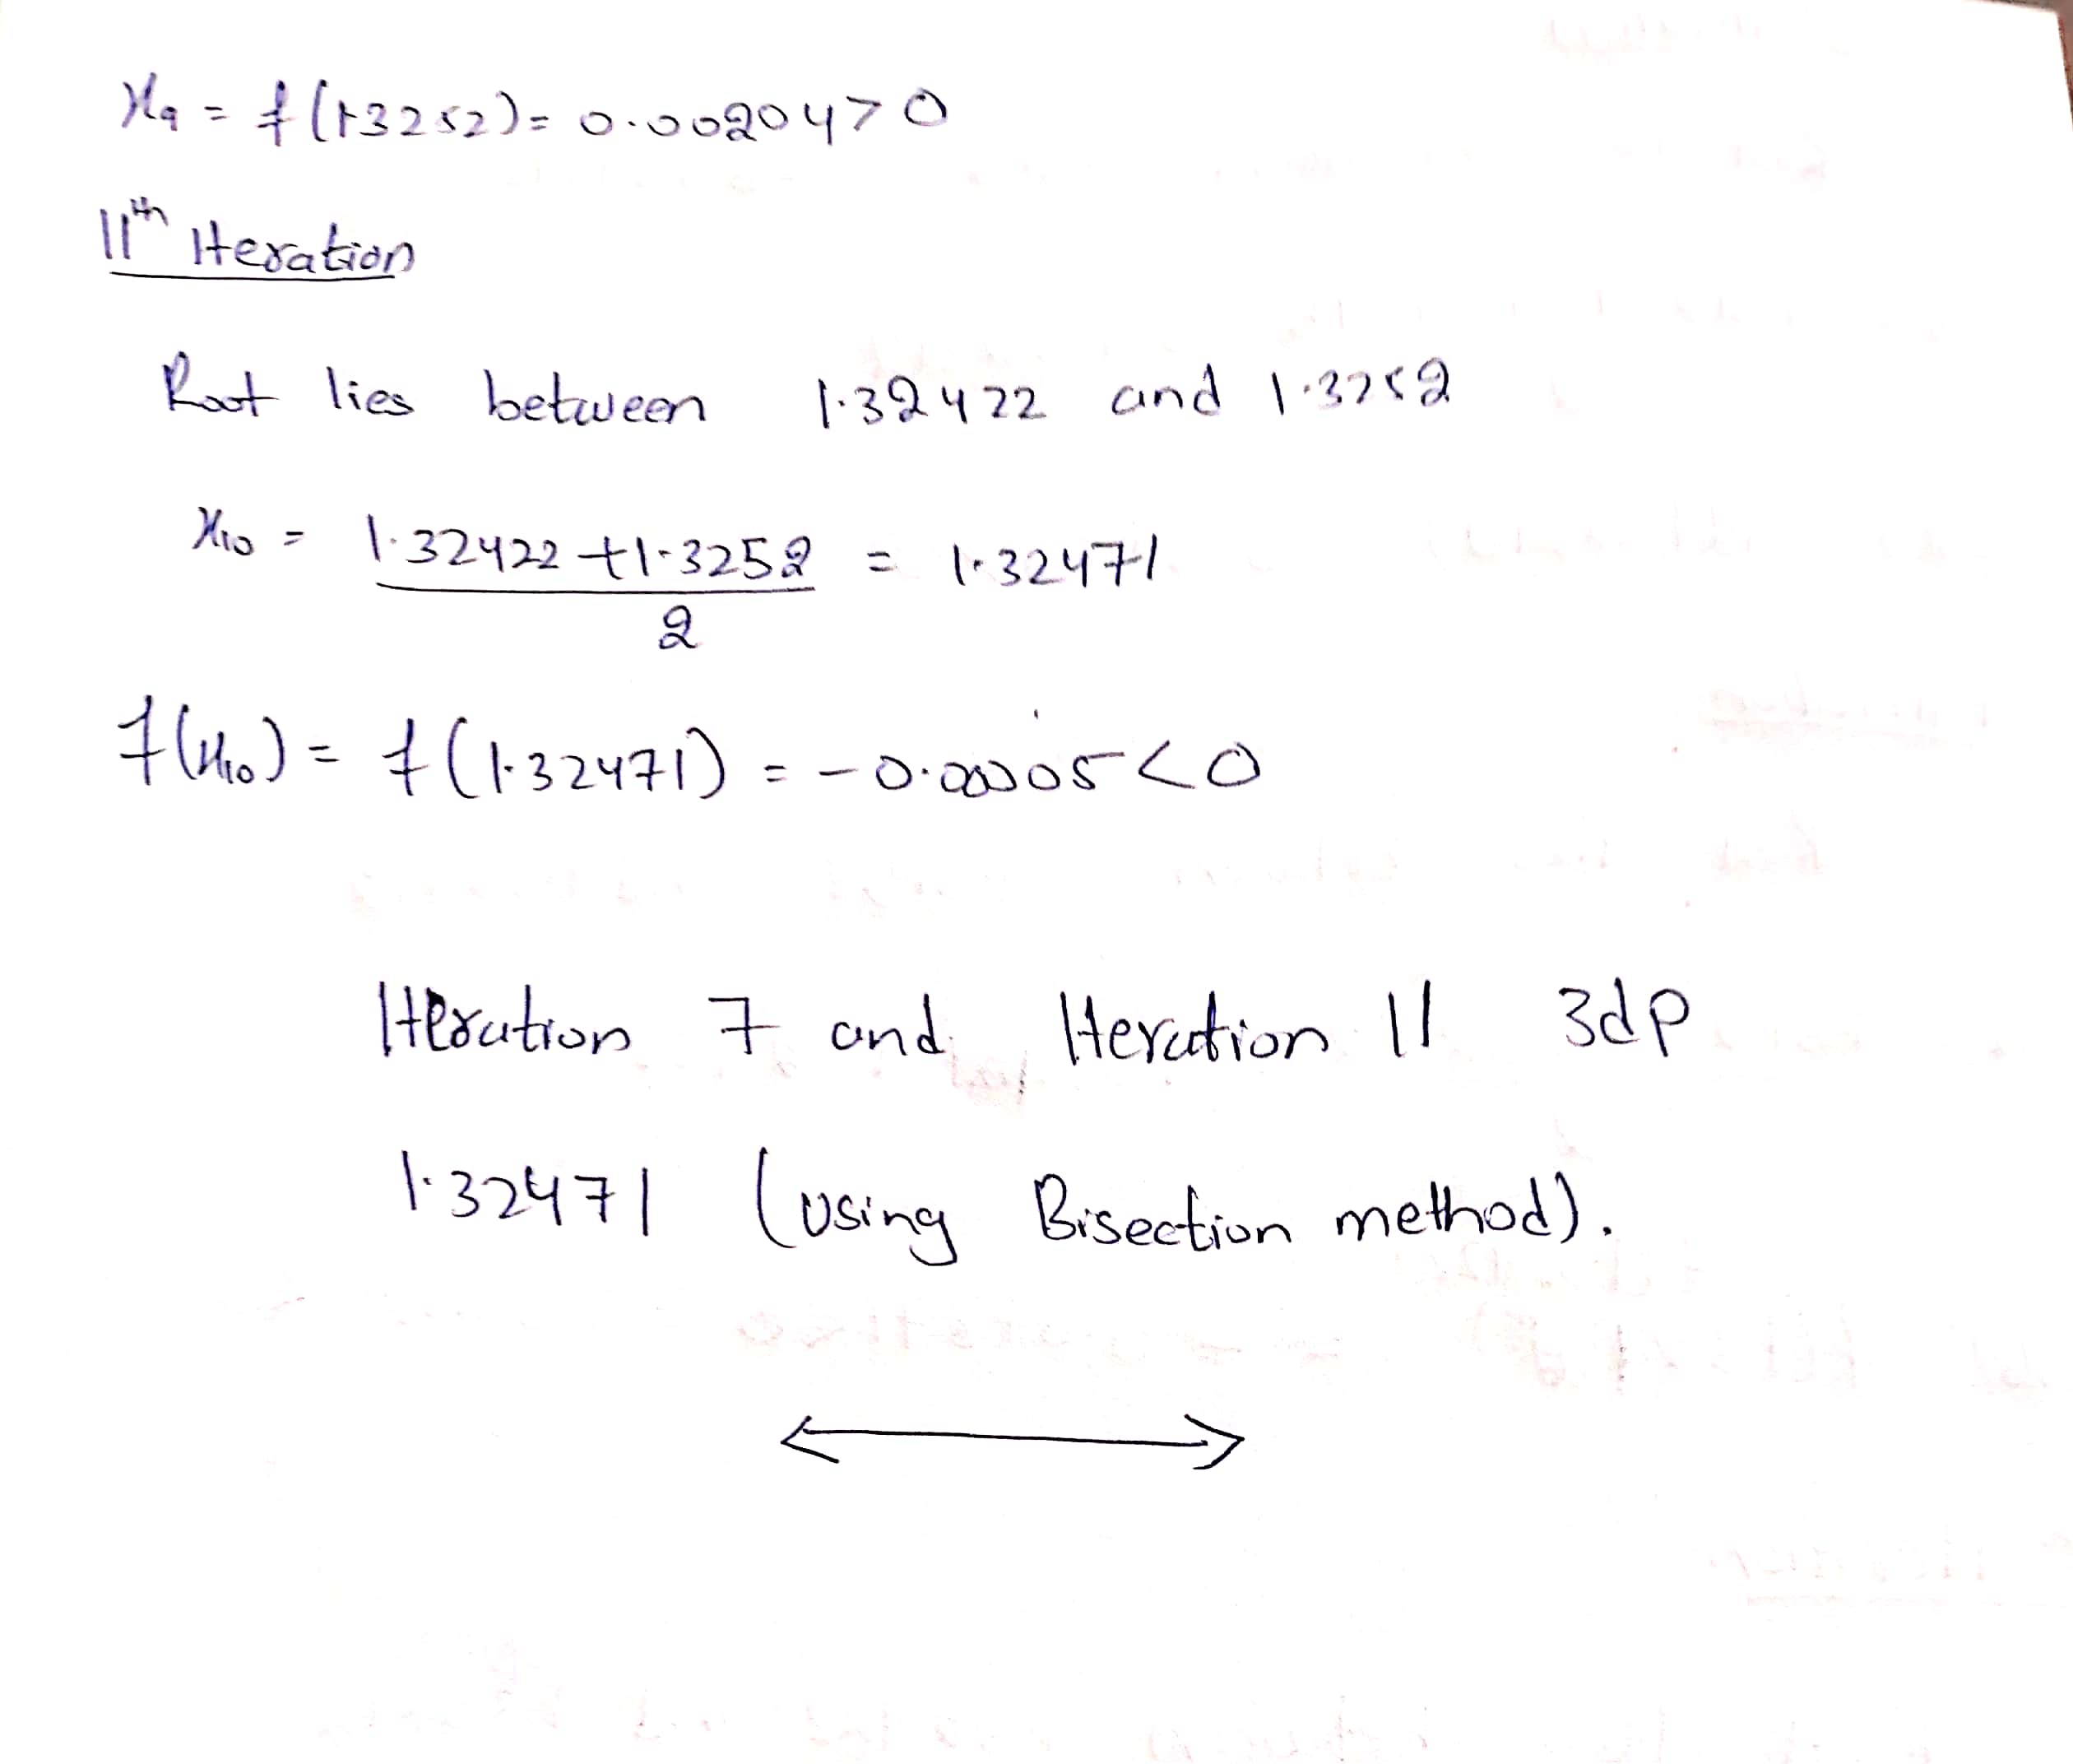 x₉ = f(1.3252) = 0.00204 > 0
11th Iteration
Root lies between 1.32422 and 1.3252
x₁₀ = 1.32422 + 1.3252 = 1.32471
2
f(x₁₀) = f(1.32471) = -0.00005 < 0
Iteration 7 and Iteration 11 3dp
1.32471 (using Bisection method).